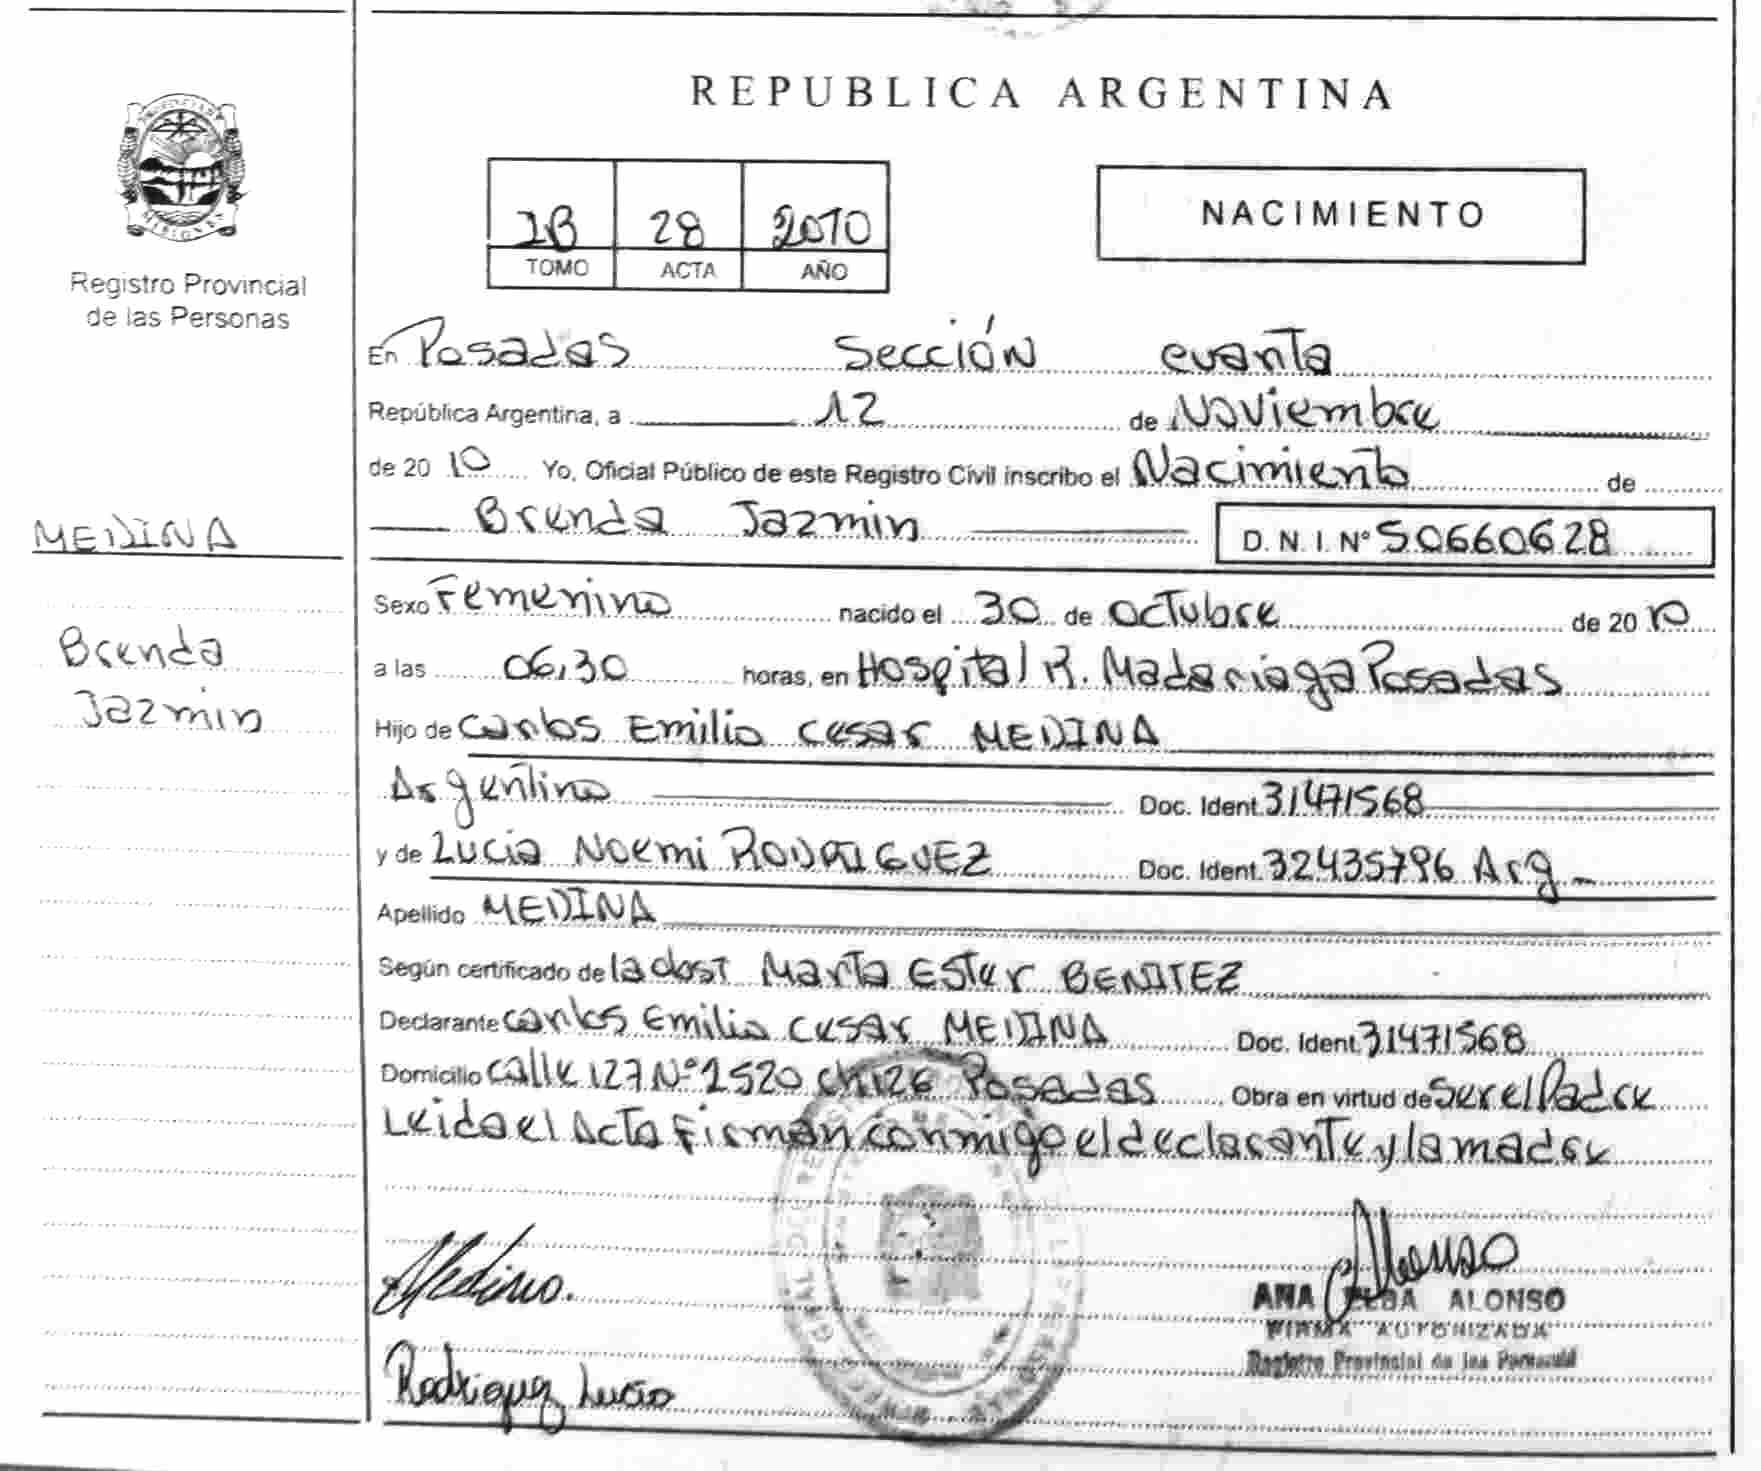 REPUBLICA ARGENTINA
MISIONES
Registro Provincial
de las Personas
1B 28 2010
TOMO ACTA AÑO
NACIMIENTO
En Posadas Sección cuarta
República Argentina, a 12 de Noviembre
de 2010 Yo, Oficial Público de este Registro Civil inscribo el Nacimiento de
Brenda Jazmin D. N. I. Nº 50660628
MEDINA
Brenda
Jazmin
Sexo Femenino nacido el 30 de octubre de 2010
a las 06,30 horas, en Hospital R. Madariaga Posadas
Hijo de Carlos Emilio Cesar MEDINA
Argentino Doc. Ident. 31471568
y de Lucia Noemi RODRIGUEZ Doc. Ident. 32435796 Arg
Apellido MEDINA
Según certificado de la obst Marta Ester BENITEZ
Declarante Carlos Emilio Cesar MEDINA Doc. Ident. 31471568
Domicilio calle 127 Nº 2520 ch 126 Posadas Obra en virtud de Ser el Padre
Leida el Acta Firman conmigo el declarante y la madre
Medina.
Alonso
ANA ELBA ALONSO
FIRMA AUTORIZADA
Registro Provincial de las Personas
Rodriguez Lucia